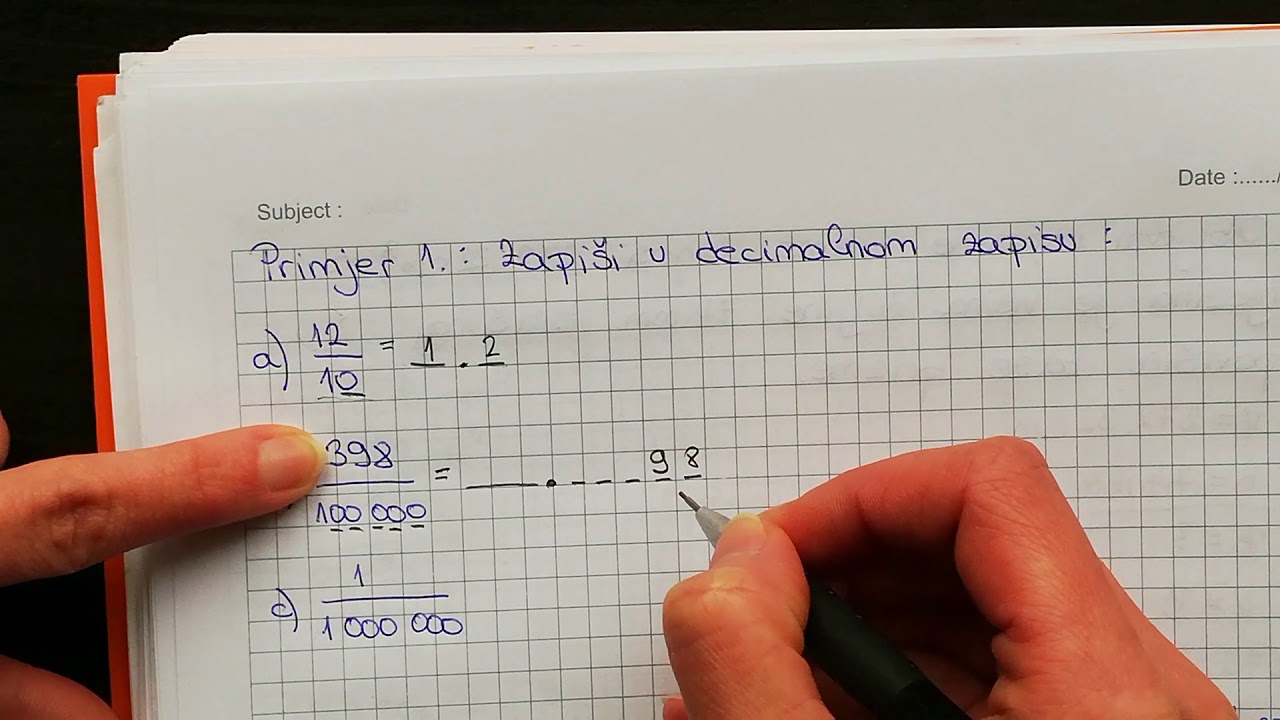 Subject :
Date :....../
Primjer 1. : Zapiši u decimalnom zapisu :
a) 12/10 = 1 . 2
398/100 000 = __ . _ _ _ 9 8
c) 1/1 000 000